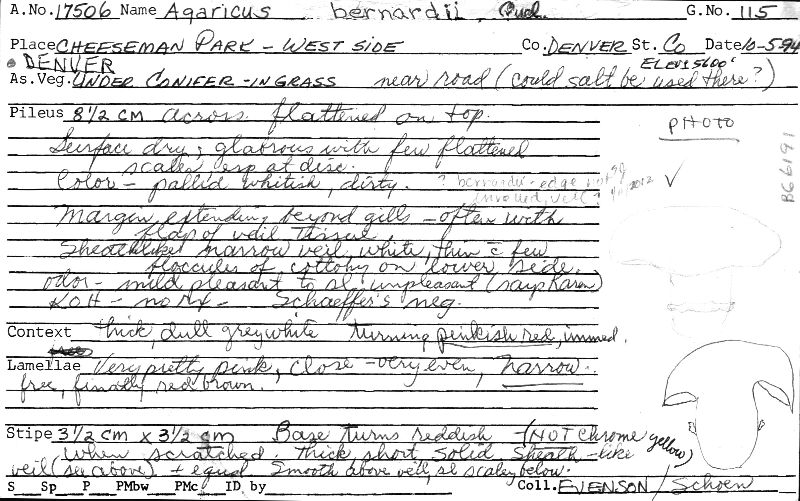 A.No. 17506 Name Agaricus bernardii, Quel. G.No. 115
Place CHEESEMAN PARK - WEST SIDE Co. DENVER St. CO Date 10-5-94
DENVER ELEV 5600'
As.Veg. UNDER CONIFER - IN GRASS near road (could salt be used there?)
Pileus 8 1/2 cm across flattened on top.
PHOTO
B66191
Surface dry; glabrous with few flattened
scales, esp at disc.
Color - pallid whitish, dirty. ? bernardii - edge
involled, veil 2012
Margin extending beyond gills - often with
flap of veil tissue.
Sheathlike narrow veil, white, thin c̄ few
floccules of cottony on lower side.
odor - mild pleasant to sl. unpleasant (says Karen)
KOH - no rx - Schaeffer's neg.
Context thick, dull greywhite turning pinkish red, immed.
Lamellae Very pretty pink, close - very even, narrow.
free, finally red brown.
Stipe 3 1/2 cm x 3 1/2 cm Base turns reddish (NOT chrome yellow)
when scratched. Thick, short, solid Sheath-like
veil (see above) + equal. Smooth above veil, sl scaley below.
S Sp P PMbw PMc ID by Coll. EVENSON / Schoen